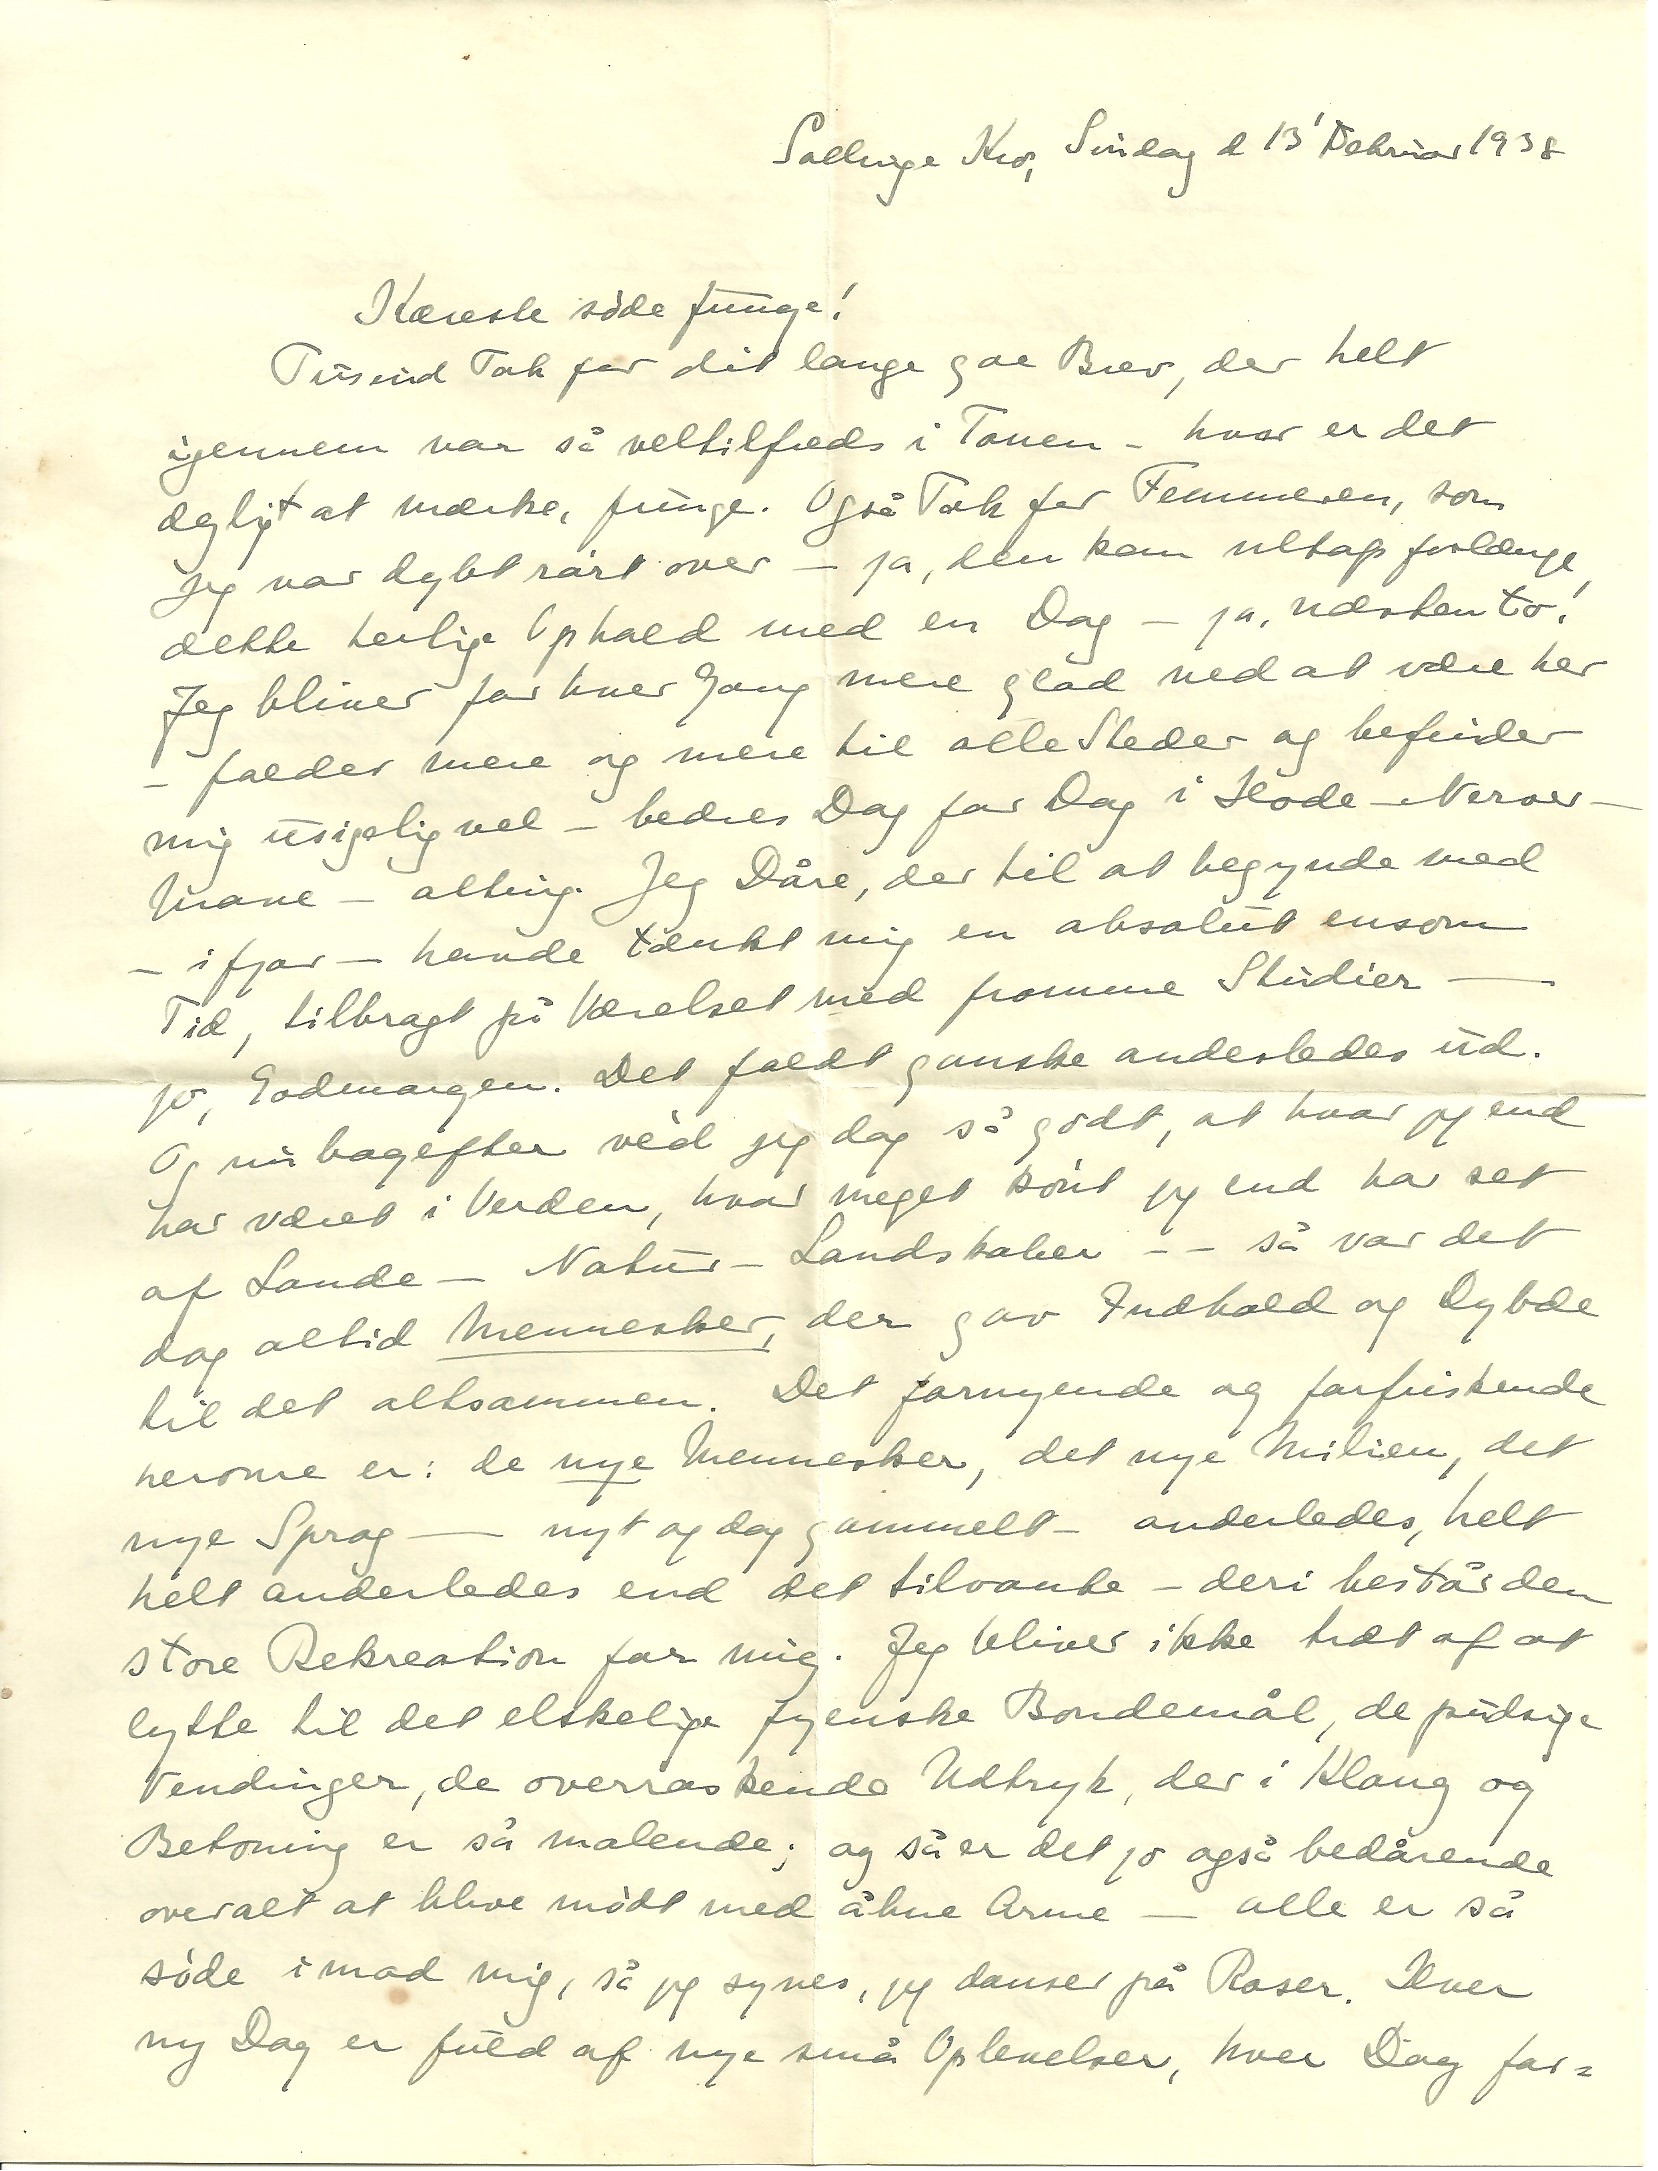 Sallinge Kro, Søndag d 13' Februar 1938
Kæreste søde Junge!
Tusind Tak for dit lange gae Brev, der helt
igennem var så veltilfreds i Tonen – hvor er det
dejligt at mærke, Junge. Også Tak for Femmeren, som
jeg var dybt rørt over – ja, den kan netop forlænge
dette herlige Ophold med en Dag – ja, næsten to!
Jeg bliver for hver Gang mere glad ved at være her
– falder mere og mere til alle Steder og befinder
mig usigelig vel – bedres Dag for Dag i Hode – Nerver –
Mave – alting. Jeg Dåre, der til at begynde med
– ifjor – havde tænkt mig en absolut ensom
Tid, tilbragt på Værelset med fromme Studier —
jo, Godmorgen. Det faldt ganske anderledes ud.
Og nu bagefter véd jeg dog så godt, at hvor jeg end
har været i Verden, hvor meget kønt jeg end har set
af Lande – Natur – Landskaber – – så var det
dog altid Mennesker, der gav Indhold og Dybde
til det altsammen. Det fornyende og forfriskende
herovre er: de nye Mennesker, det nye Milieu, det
nye Sprog — nyt og dog gammelt – anderledes, helt
helt anderledes end det tilvante – deri består den
store Rekreation for mig. Jeg bliver ikke træt af at
lytte til det elskelige fyenske Bondemål, de pudsige
Vendinger, de overraskende Udtryk, der i Klang og
Betoning er så malende; og så er det jo også bedårende
overalt at blive mødt med åbne Arme – alle er så
søde imod mig, så jeg synes, jeg danser på Roser. Hver
ny Dag er fuld af nye små Oplevelser, hver Dag for=